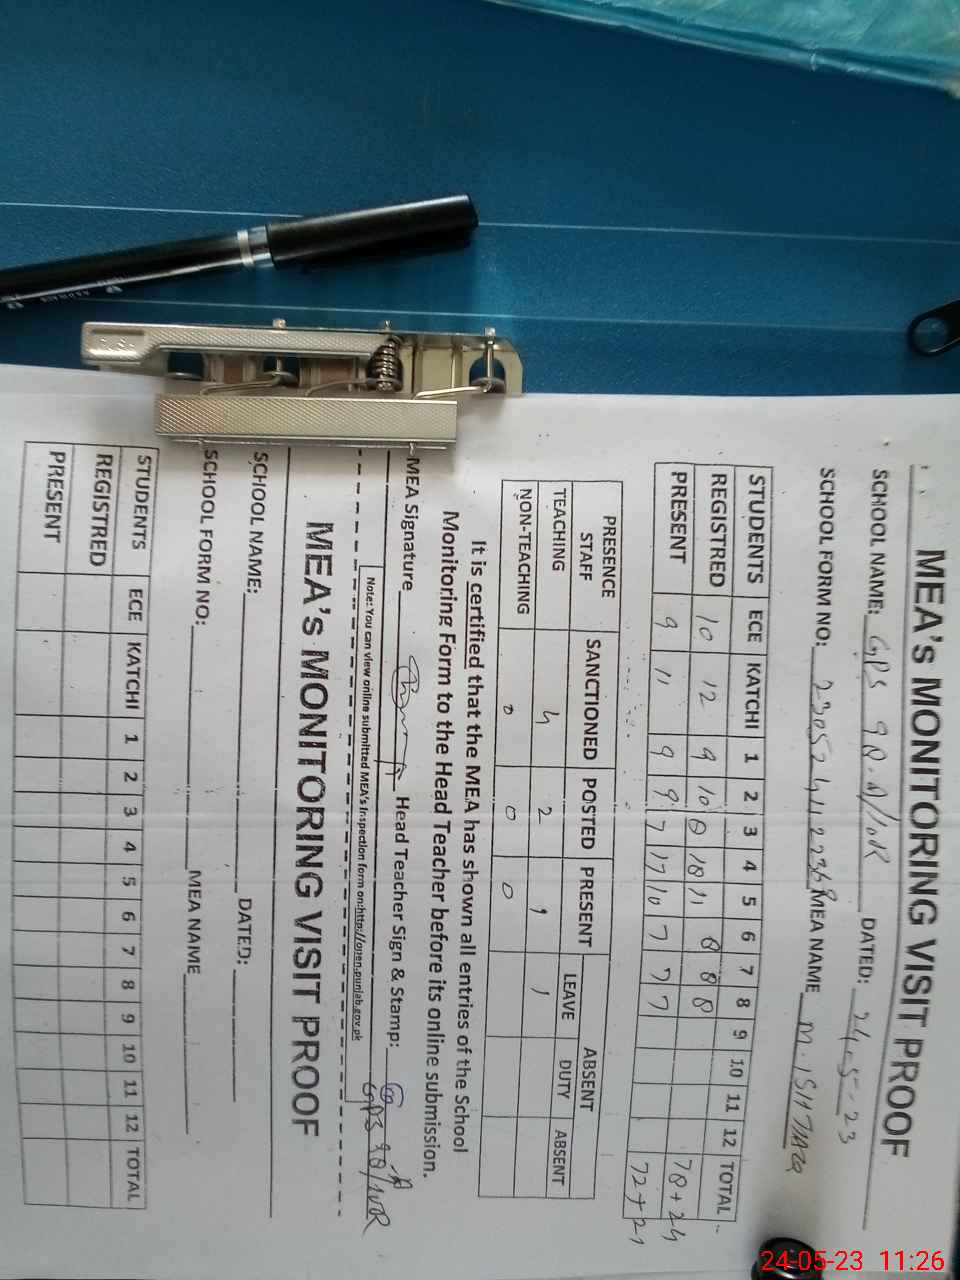 MEA's MONITORING VISIT PROOF
SCHOOL NAME: GPS 98.A/10R DATED: 24-5-23
SCHOOL FORM NO: MEA NAME M.
STUDENTS ECE KATCHI 1 2 3 4 5 6 7 8 9 10 11 12 TOTAL
REGISTRED 10 12 9 10 8 18 11 8 8 8 78+24
PRESENT 9 11 9 9 7 17 10 7 7 7 72+21
PRESENCE SANCTIONED POSTED PRESENT ABSENT
STAFF LEAVE DUTY ABSENT
TEACHING 4 2 1 1
NON-TEACHING 0 0 0
It is certified that the MEA has shown all entries of the School
Monitoring Form to the Head Teacher before its online submission.
MEA Signature Head Teacher Sign & Stamp: GPS 98/10R
Note: You can view online submitted MEA's Inspection form on:http://open.punjab.gov.pk
MEA's MONITORING VISIT PROOF
SCHOOL NAME: DATED:
SCHOOL FORM NO: MEA NAME
STUDENTS ECE KATCHI 1 2 3 4 5 6 7 8 9 10 11 12 TOTAL
REGISTRED
PRESENT
24-05-23 11:26